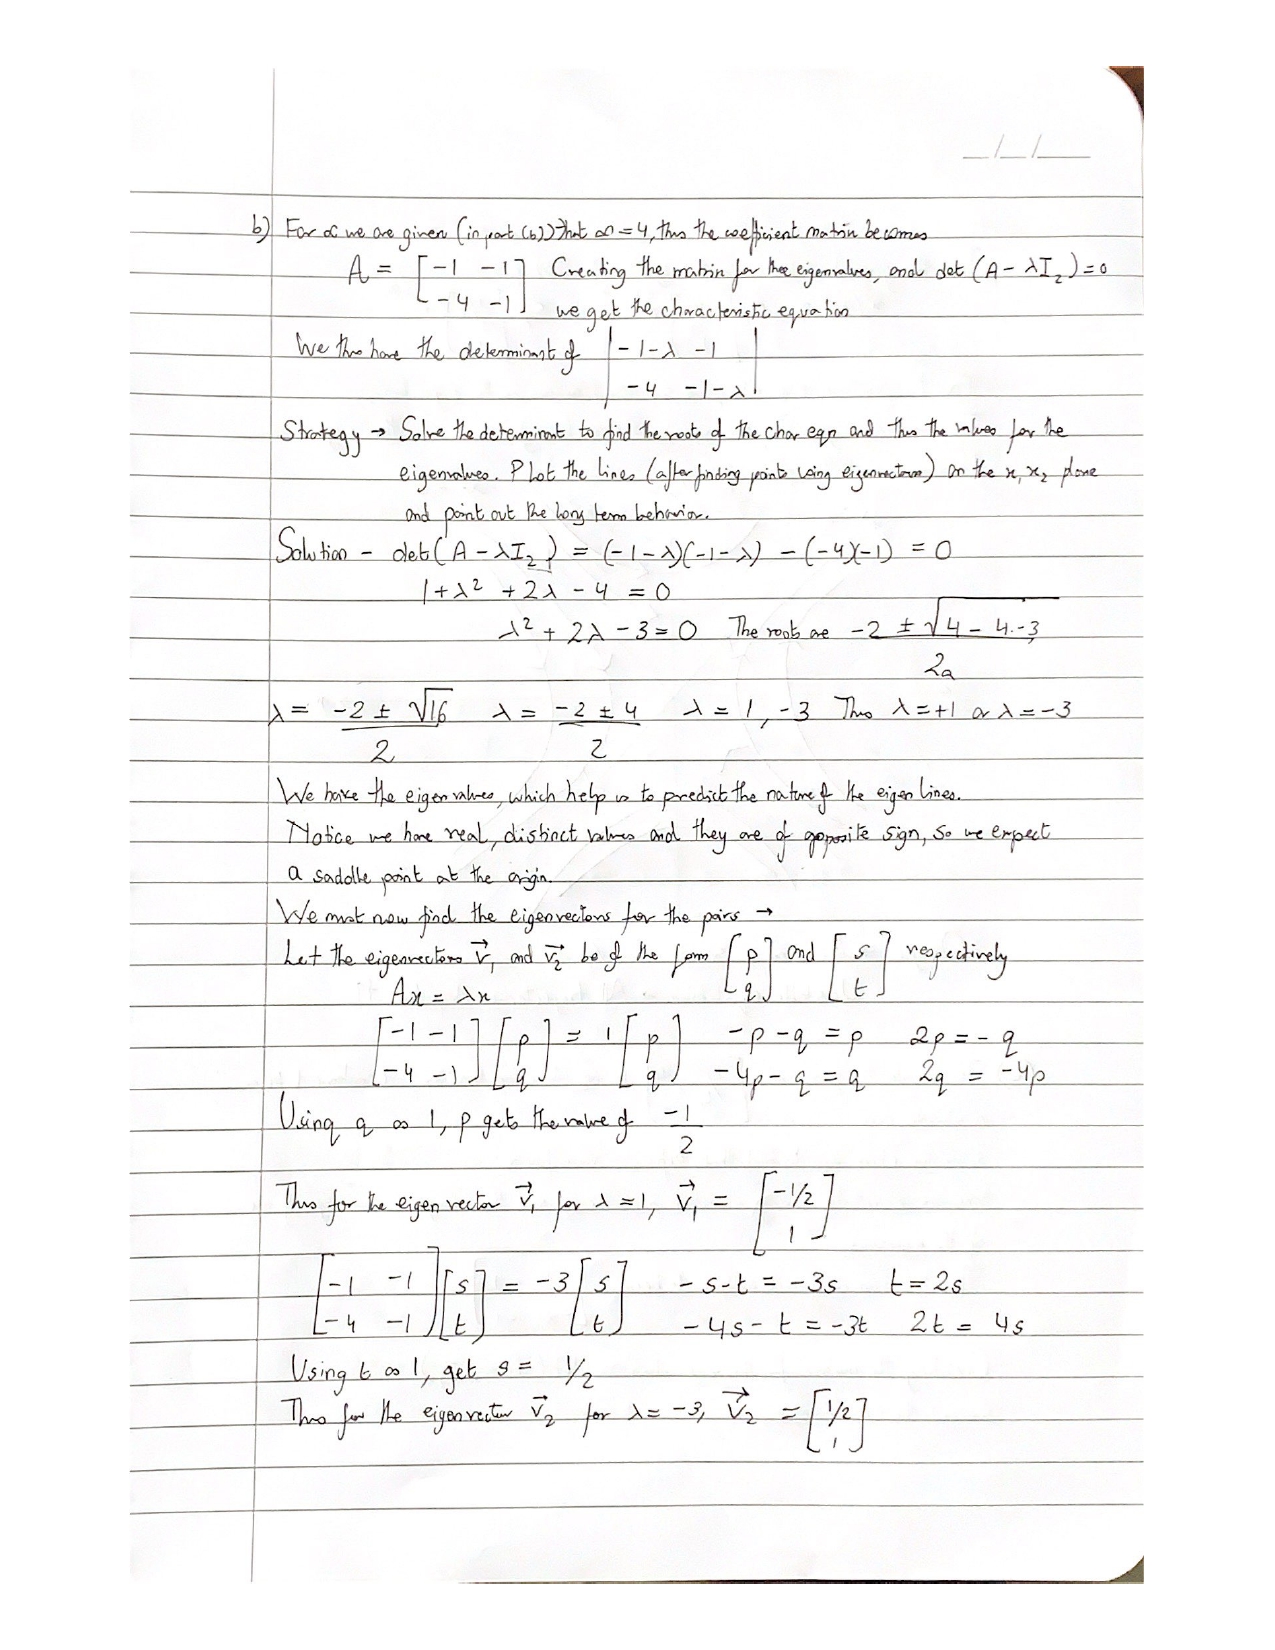 _/_/_
b) For α we are given (in part (b)) that α = 4, thus the coefficient matrix becomes
A = [ -1 -1 ; -4 -1 ] Creating the matrix for the eigenvalues, and det (A - λI₂) = 0
we get the characteristic equation
We thus have the determinant of | -1-λ -1 ; -4 -1-λ |
Strategy → Solve the determinant to find the roots of the char eqn and thus the values for the
eigenvalues. Plot the lines (after finding points using eigenvectors) on the x₁ x₂ plane
and point out the long term behavior.
Solution - det(A - λI₂) = (-1-λ)(-1-λ) - (-4)(-1) = 0
1 + λ² + 2λ - 4 = 0
λ² + 2λ - 3 = 0 The roots are (-2 ± √(4 - 4·-3)) / 2a
λ = (-2 ± √16) / 2 λ = (-2 ± 4) / 2 λ = 1, -3 Thus λ = +1 or λ = -3
We have the eigenvalues, which help us to predict the nature of the eigen lines.
Notice we have real, distinct values and they are of opposite sign, so we expect
a saddle point at the origin.
We must now find the eigenvectors for the pairs →
Let the eigenvectors v⃗₁ and v⃗₂ be of the form [ p ; q ] and [ s ; t ] respectively
Ax = λx
[ -1 -1 ; -4 -1 ] [ p ; q ] = 1 [ p ; q ] -p - q = p 2p = -q
-4p - q = q 2q = -4p
Using q as 1, p gets the value of -1/2
Thus for the eigen vector v⃗₁ for λ = 1, v⃗₁ = [ -1/2 ; 1 ]
[ -1 -1 ; -4 -1 ] [ s ; t ] = -3 [ s ; t ] -s - t = -3s t = 2s
-4s - t = -3t 2t = 4s
Using t as 1, get s = 1/2
Thus for the eigenvector v⃗₂ for λ = -3, v⃗₂ = [ 1/2 ; 1 ]